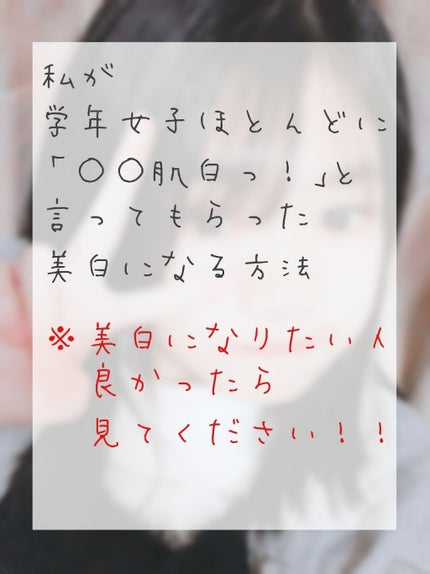 私が
学年女子ほとんどに
「○○肌白っ！」と
言ってもらった
美白になる方法
※美白になりたい人
良かったら
見てください！！